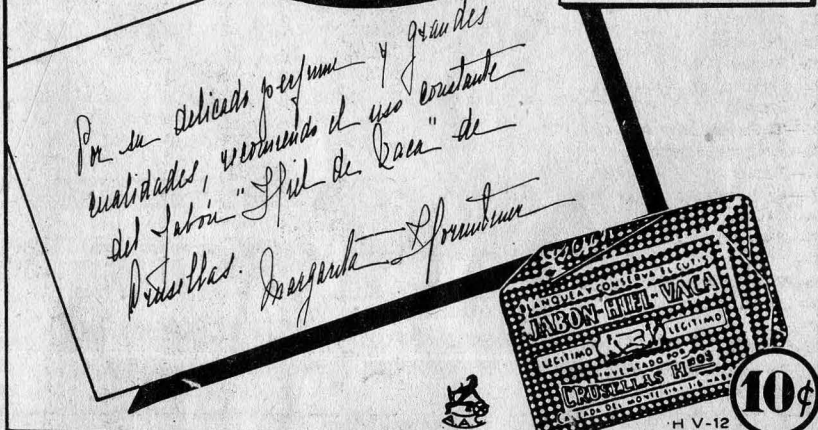 Por su delicado perfume y grandes
cualidades, recomiendo el uso constante
del Jabón "Hiel de Vaca" de
Crusellas. Margarita
BLANQUEA Y CONSERVA EL CUTIS
JABON-HIEL-VACA
LEGITIMO LEGITIMO
INVENTADO POR
CRUSELLAS Hnos
CALZADA DEL MONTE
S.A.C.
H V-12
10¢